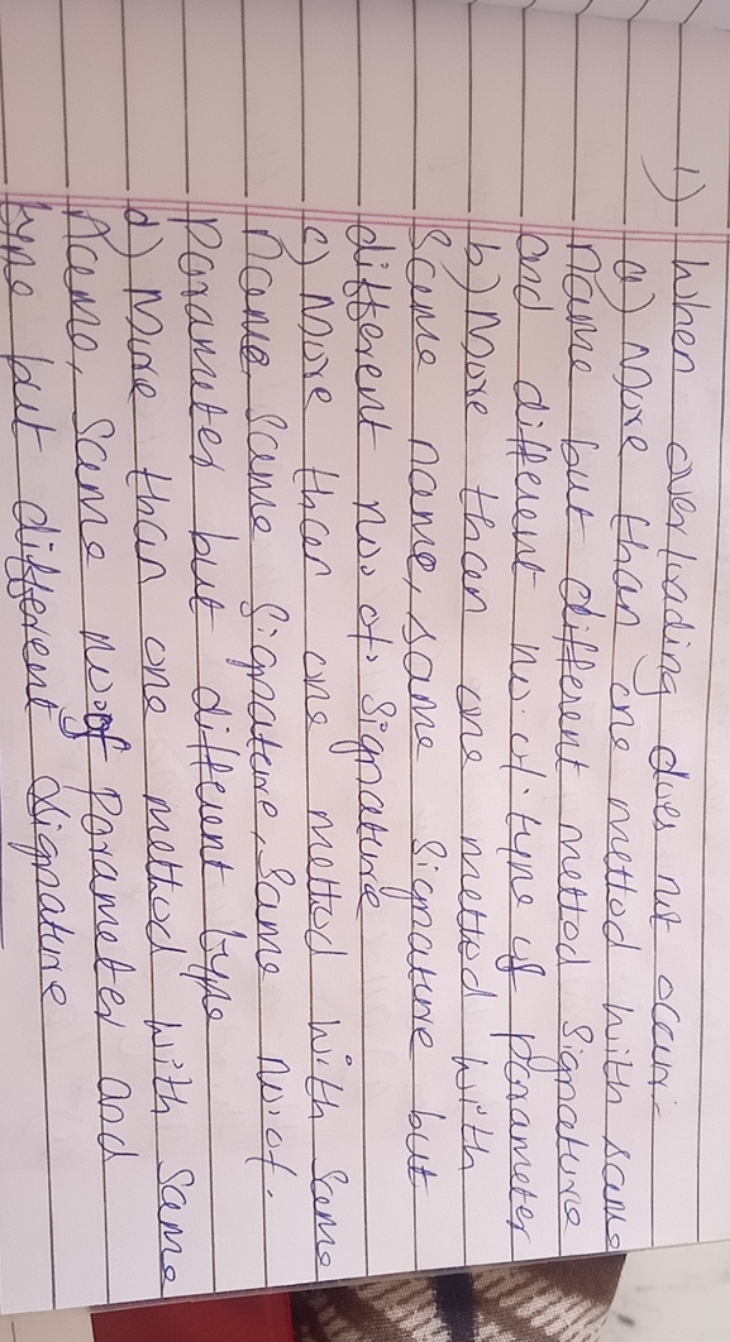 1) When overloading does not occur:-
a) More than one method with same
name but different method signature
and different no. of type of parameter
b) More than one method with
same name, same signature but
different no. of. signature
c) More than one method with same
name, same signature, same no. of.
parameter but different type
d) More than one method with same
name, same no. of parameter and
type but different signature